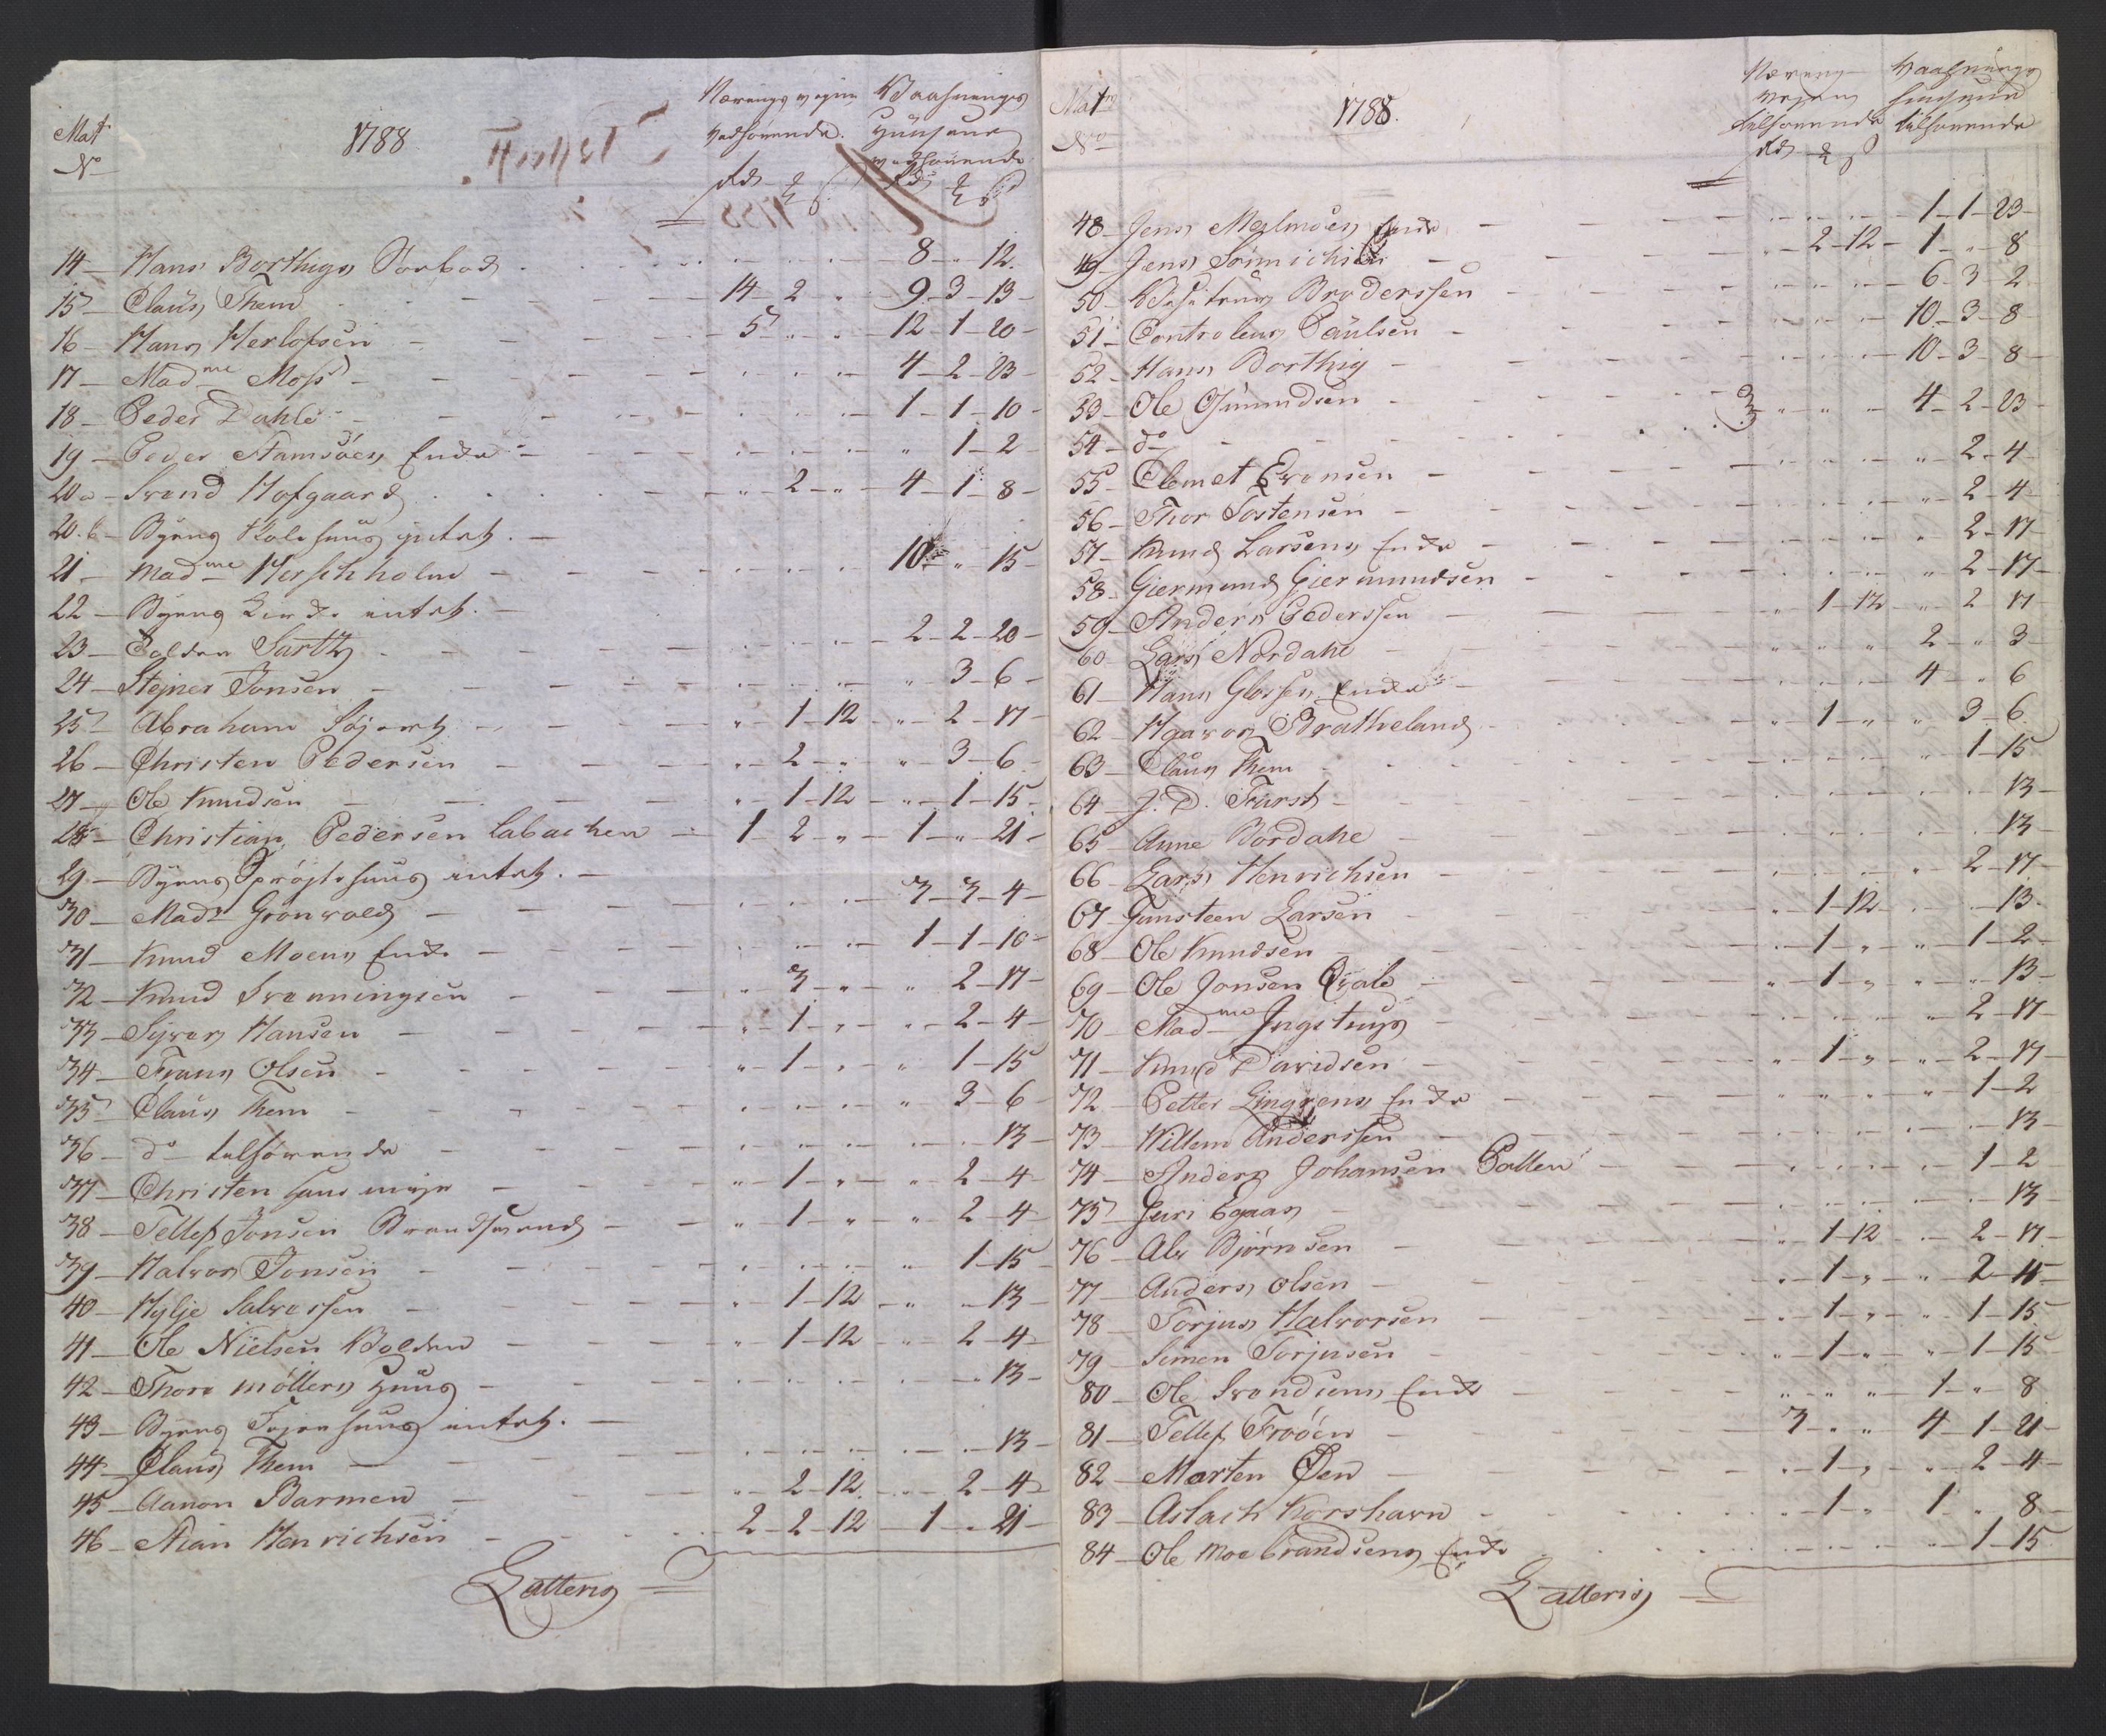 Mat
No
1788
Nærings vejen
vedkommende.
Vaaningse
Huusene
vedkommende
Rd
14 — Hans Borthigs Søeboe — 8 — " — 12.
15 — Claus Them — 14 — 2 — " — 9 — 3 — 13
16 — Hans Herlofsen — 5 — " — " — 12 — 1 — 20
17 — Madme Moss — 4 — 2 — 23
18 — Peder Dahle — 1 — 1 — 10
19 — Peder Hamsøes Enke — " — 1 — 2
20a — Svend Hofgaard — " — 2 — " — 4 — 1 — 8
20.b — Byens huus intet.
21 — Madme Herschholm — 10 — " — 15
22 — Byens intet.
23 — Sartz — 2 — 2 — 20
24 — Stejner Jonsen — " — 3 — 6
25 — Abraham — " — 1 — 12 — " — 2 — 17
26 — Christen Pedersen — " — 2 — " — " — 3 — 6
27 — Ole Knudsen — " — 1 — 12 — " — 1 — 15
28 — Christian Pedersen Labachen — 1 — 2 — " — 1 — " — 21
29 — Byens Sprøjtehuus intet.
30 — Mad Grønvold — 3 — 3 — 4
31 — Knud Moens Enke — 1 — 1 — 10
32 — Knud Svenningsen — " — 3 — " — " — 2 — 17
33 — Syver Hansen — " — 1 — " — " — 2 — 4
34 — Frans Olsen — " — 1 — " — " — 1 — 15
35 — Claus Them — " — 3 — 6
36 — do tilhørende — 13
37 — Christen — " — 1 — " — " — 2 — 4
38 — Tellef Jonsen — " — 1 — " — " — 2 — 4
39 — Halvor Jonsen — " — 1 — 15
40 — Hylje Salvessen — " — 1 — 12 — " — " — 13
41 — Ole Nielsen — " — 1 — 12 — " — 2 — 4
42 — Thore Møllers Huus — 13
43 — Byens huus intet.
44 — Claus Them — 13
45 — Aanon Barmen — " — 2 — 12 — " — 2 — 4
46 — Nian Henrichsen — 2 — 2 — 12 — 1 — " — 21
Latteris
Matr
No
1788.
Nærings
vejen
tilhørende
Rd
Vaaningse
husene
tilhørende
48 — Jens Malmøes Enke — 1 — 1 — 23
49 — Jens — " — 2 — 12 — 1 — " — 8
50 — Broderssen — 6 — 3 — 2
51 — Controleur Paulsen — 10 — 3 — 8
52 — Hans Borthig — 10 — 3 — 8
53 — Ole Gunundsen — 4 — 2 — 23
54 — do
55 — Clemet Evensen — " — 2 — 4
56 — Thor Tostensen — " — 2 — 4
57 — Knud Larsens Enke — " — 2 — 17
58 — Giermund Giermundsen — " — 2 — 17
59 — Anders Pederssen — " — 1 — 12 — " — 2 — 17
60 — Lars Nordahl — 2 — " — 3
61 — Hans Enke — 4 — " — 6
62 — Haavor Bratheland — " — 1 — " — " — 3 — 6
63 — Claus Them — " — 1 — 15
64 — J. D. Fürst — 13
65 — Anne Nordahl — 13
66 — Lars Henrichsen — " — 2 — 17
67 — Gunsteen Larsen — " — 1 — 12 — 13
68 — Ole Knudsen — " — 1 — " — " — 1 — 2
69 — Ole Jonsen Qvale — " — 1 — " — " — " — 13
70 — Madme Ingstrups — " — 2 — 17
71 — Knud Davidsen — " — 1 — " — " — 2 — 17
72 — Petter Lingrens Enke — " — 1 — 2
73 — Willem Anderssen — 13
74 — Anders Johansen — 1 — 2
75 — Guri Egaas — 13
76 — Abr Bjørnsen — " — 1 — 12 — 2 — 17
77 — Anders Olsen — " — 1 — " — " — 2 — 15
78 — Torjus Halvorsen — " — 1 — " — " — 1 — 15
79 — Simen Torjusen — " — 1 — " — " — 1 — 15
80 — Ole Svendsens Enke — 1 — " — 8
81 — Tellef Froöen — 3 — " — " — 4 — 1 — 21
82 — Morten Øen — " — 1 — " — " — 2 — 4
83 — Aslach Korshavn — " — 1 — " — 1 — " — 8
84 — Ole Enke — " — 1 — 15
Latteris